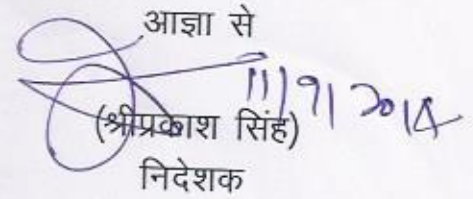 आज्ञा से
11/9/2014
(श्रीप्रकाश सिंह)
निदेशक